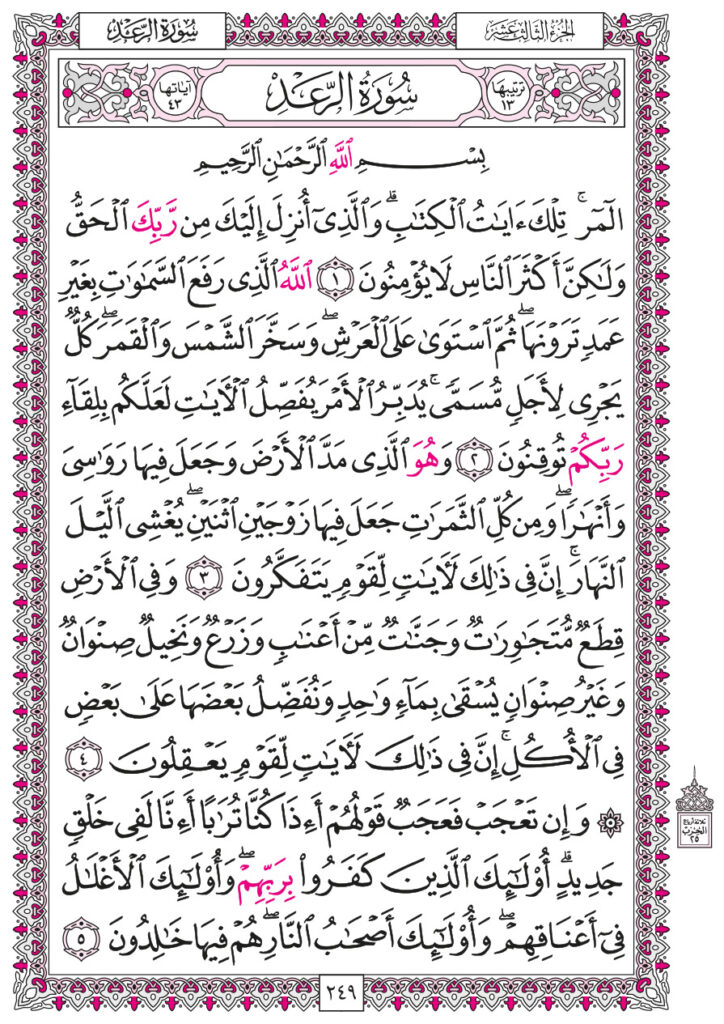 الجزء الثالث عشر
سُورَةُ الرَّعْدِ
ترتيبها ١٣
سُورَةُ الرَّعْدِ
آياتها ٤٣
بِسْمِ ٱللَّهِ ٱلرَّحْمَٰنِ ٱلرَّحِيمِ
الٓمٓرۚ تِلْكَ ءَايَٰتُ ٱلْكِتَٰبِۗ وَٱلَّذِىٓ أُنزِلَ إِلَيْكَ مِن رَّبِّكَ ٱلْحَقُّ
وَلَٰكِنَّ أَكْثَرَ ٱلنَّاسِ لَا يُؤْمِنُونَ ١ ٱللَّهُ ٱلَّذِى رَفَعَ ٱلسَّمَٰوَٰتِ بِغَيْرِ
عَمَدٍ تَرَوْنَهَاۖ ثُمَّ ٱسْتَوَىٰ عَلَى ٱلْعَرْشِۖ وَسَخَّرَ ٱلشَّمْسَ وَٱلْقَمَرَۖ كُلٌّ
يَجْرِى لِأَجَلٍ مُّسَمًّىۚ يُدَبِّرُ ٱلْأَمْرَ يُفَصِّلُ ٱلْءَايَٰتِ لَعَلَّكُم بِلِقَآءِ
رَبِّكُمْ تُوقِنُونَ ٢ وَهُوَ ٱلَّذِى مَدَّ ٱلْأَرْضَ وَجَعَلَ فِيهَا رَوَٰسِىَ
وَأَنْهَٰرًاۖ وَمِن كُلِّ ٱلثَّمَرَٰتِ جَعَلَ فِيهَا زَوْجَيْنِ ٱثْنَيْنِۖ يُغْشِى ٱلَّيْلَ
ٱلنَّهَارَۚ إِنَّ فِى ذَٰلِكَ لَءَايَٰتٍ لِّقَوْمٍ يَتَفَكَّرُونَ ٣ وَفِى ٱلْأَرْضِ
قِطَعٌ مُّتَجَٰوِرَٰتٌ وَجَنَّٰتٌ مِّنْ أَعْنَٰبٍ وَزَرْعٌ وَنَخِيلٌ صِنْوَانٌ
وَغَيْرُ صِنْوَانٍ يُسْقَىٰ بِمَآءٍ وَٰحِدٍ وَنُفَضِّلُ بَعْضَهَا عَلَىٰ بَعْضٍ
فِى ٱلْأُكُلِۚ إِنَّ فِى ذَٰلِكَ لَءَايَٰتٍ لِّقَوْمٍ يَعْقِلُونَ ٤
۞ وَإِن تَعْجَبْ فَعَجَبٌ قَوْلُهُمْ أَءِذَا كُنَّا تُرَٰبًا أَءِنَّا لَفِى خَلْقٍ
جَدِيدٍۗ أُو۟لَٰٓئِكَ ٱلَّذِينَ كَفَرُوا۟ بِرَبِّهِمْۖ وَأُو۟لَٰٓئِكَ ٱلْأَغْلَٰلُ
فِىٓ أَعْنَاقِهِمْۖ وَأُو۟لَٰٓئِكَ أَصْحَٰبُ ٱلنَّارِۖ هُمْ فِيهَا خَٰلِدُونَ ٥
ثلاثة أرباع
الحزب
٢٥
٢٤٩